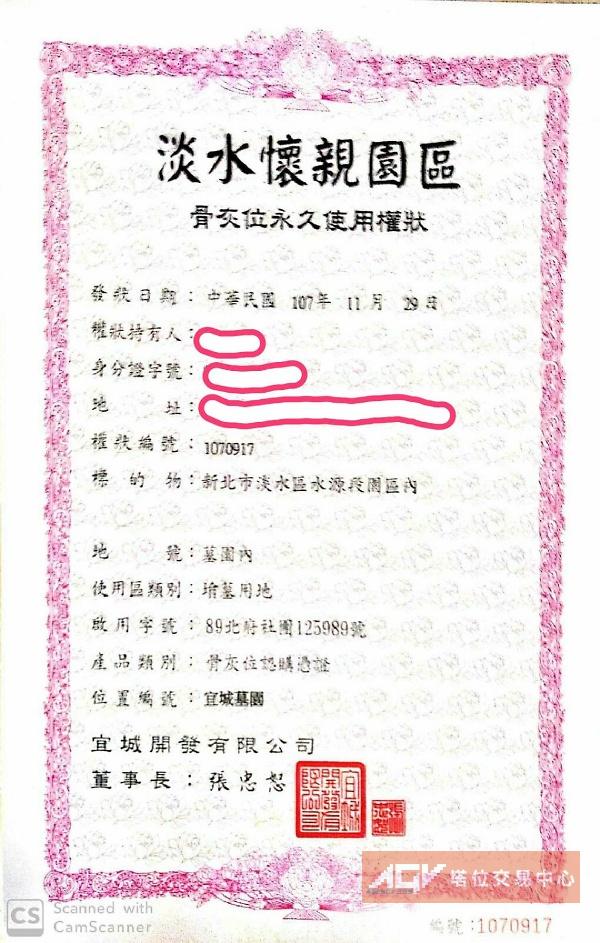 淡水懷親園區
骨灰位永久使用權狀
發狀日期：中華民國 107年 11月 29日
權狀持有人：
身分證字號：
地址：
權狀編號：1070917
標的物：新北市淡水區水源段園區內
地號：墓園內
使用區類別：墳墓用地
啟用字號：89北府社團125989號
產品類別：骨灰位認購憑證
位置編號：宜城墓園
宜城開發有限公司
董事長：張忠恕
AGV 塔位交易中心
CS Scanned with CamScanner
編號：1070917